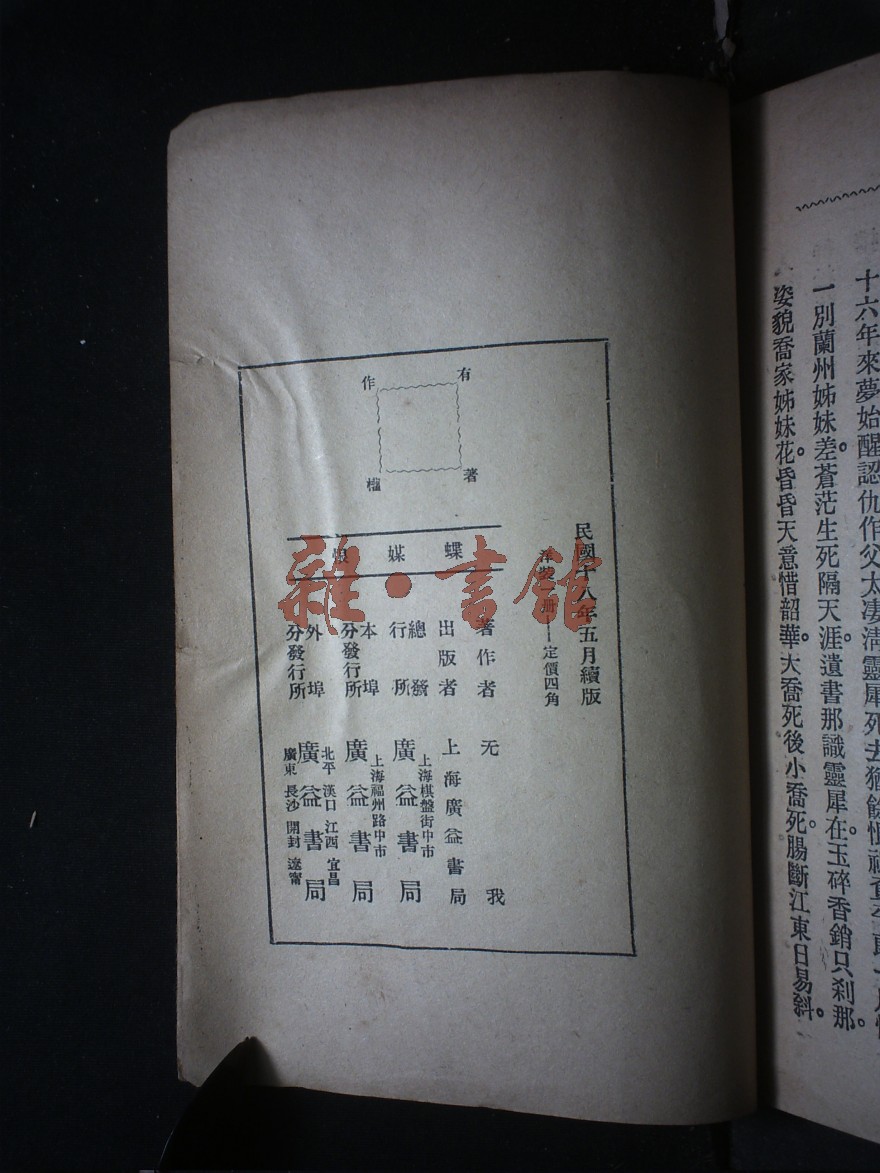 十六年來夢始醒認仇作父太凄淸靈犀死去猶餘恨
一別蘭州姊妹差。蒼茫生死隔天涯。遺書那識靈犀在。玉碎香銷只刹那。
姿貌喬家姊妹花。昏昏天意惜韶華。大喬死後小喬死。腸斷江東日易斜。
民國十八年五月續版
洋裝 冊——定價四角
有著作權
蝶媒
著作者 无我
出版者 上海廣益書局
總發行所 上海棋盤街中市 廣益書局
本埠分發行所 上海福州路中市 廣益書局
外埠分發行所 北平 漢口 江西 宜昌 廣益書局 廣東 長沙 開封 遼甯
雜·書館